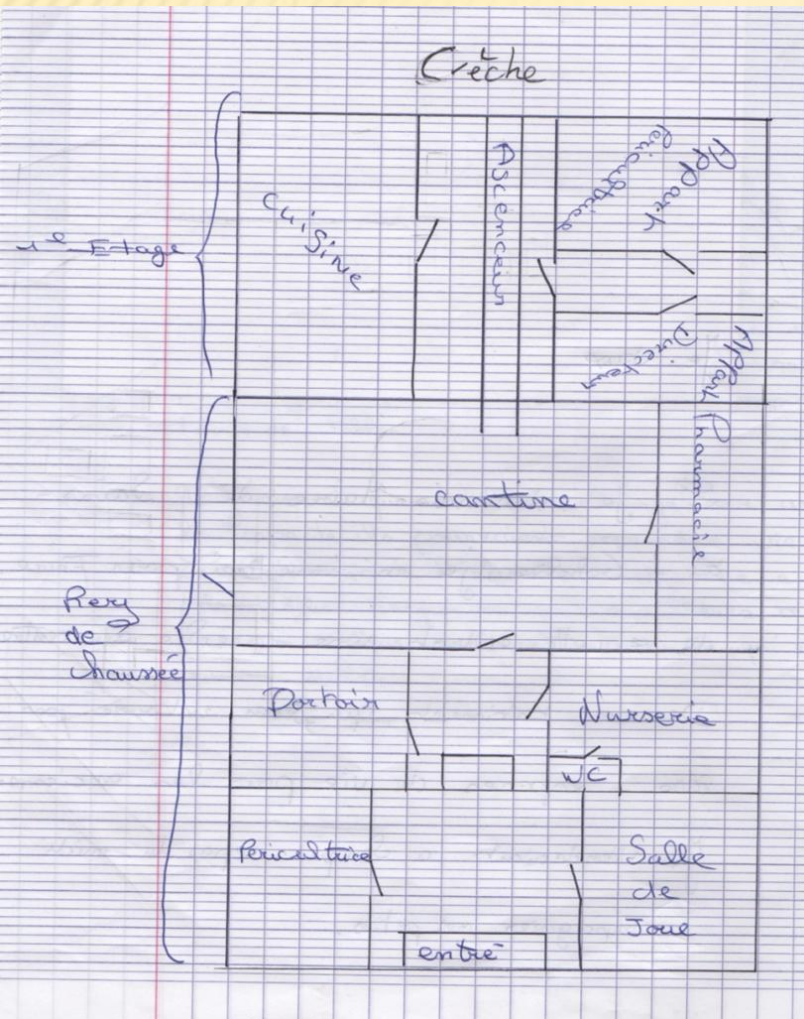 Crèche
1e Etage
Cuisine
Ascenceur
Appart
Pericultrice
Appart
Directeur
Pharmacie
cantine
Rez
de
Chaussée
Dortoir
Nurserie
WC
Pericultrice
Salle
de
Joue
entré